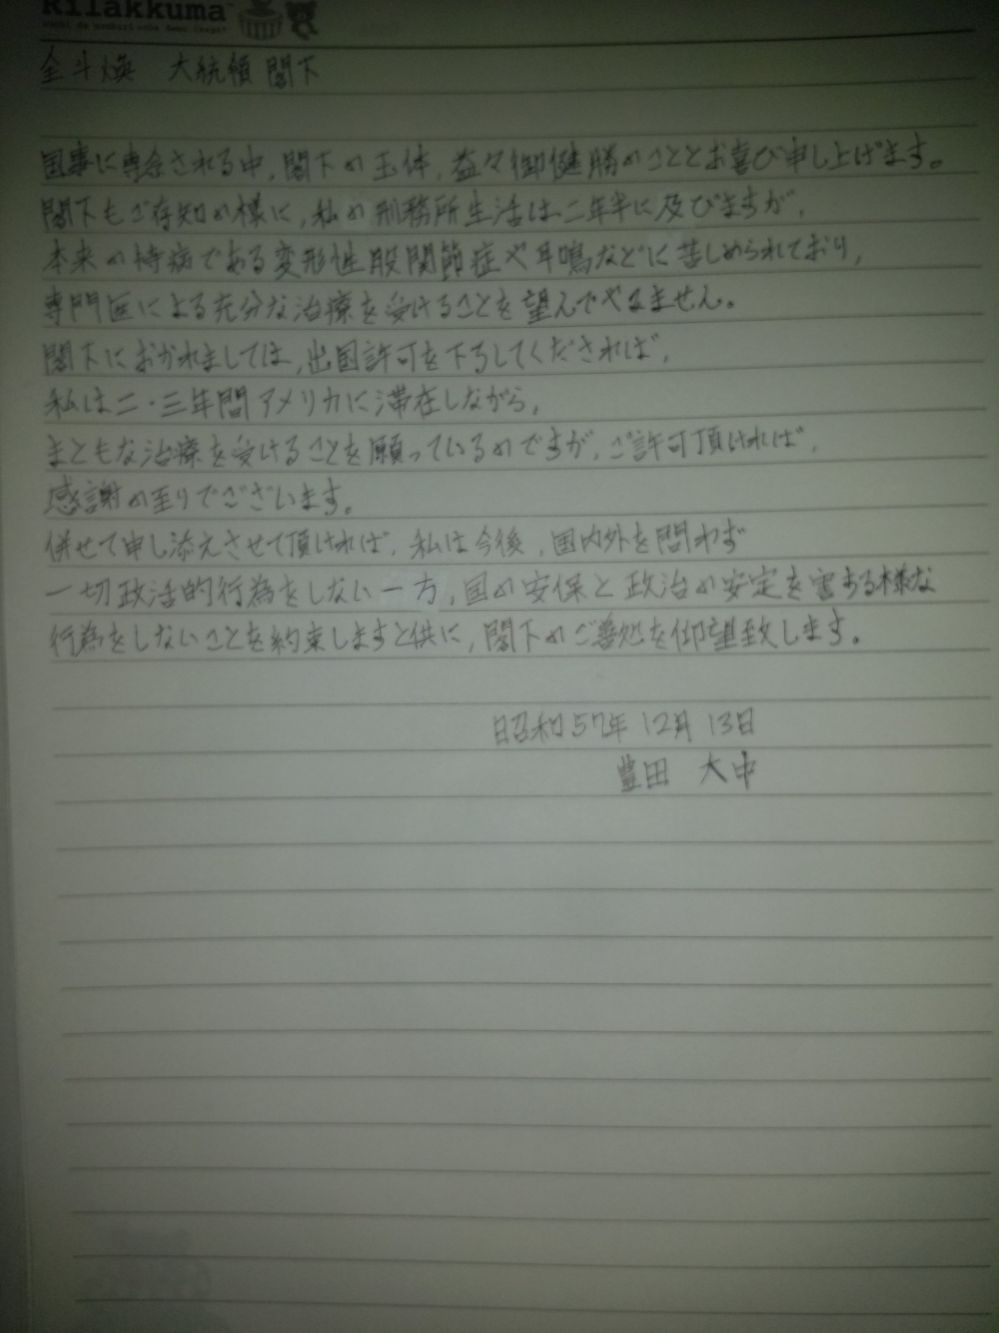 Rilakkuma™
全斗煥 大統領 閣下
国事に専念される中、閣下の玉体、益々御健勝のこととお喜び申し上げます。
閣下もご存知の様に、私の刑務所生活は二年半に及びますが、
本来の持病である変形性股関節症や耳鳴などに苦しめられており、
専門医による充分な治療を受けることを望んでやみません。
閣下におかれましては、出国許可を下ろしてくだされば、
私は二・三年間アメリカに滞在しながら、
まともな治療を受けることを願っているのですが、ご許可頂ければ、
感謝の至りでございます。
併せて申し添えさせて頂ければ、私は今後、国内外を問わず
一切政活的行為をしない一方、国の安保と政治の安定を害する様な
行為をしないことを約束しますと供に、閣下のご善処を仰望致します。
昭和57年 12月 13日
豊田 大中